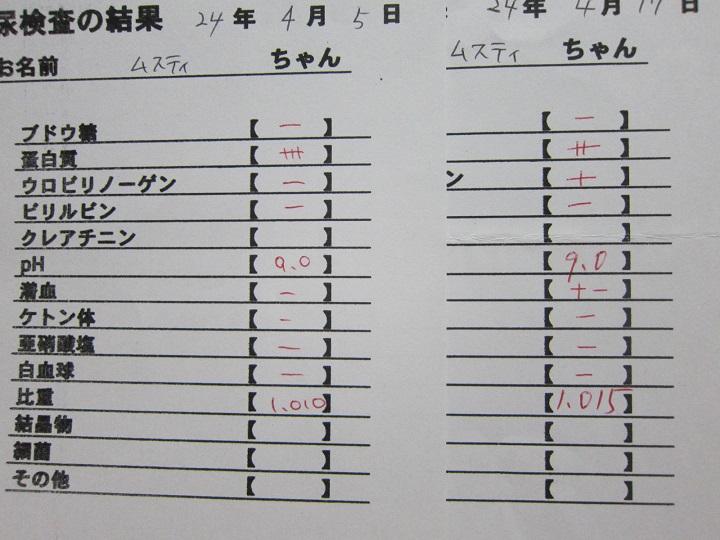 尿検査の結果 24年 4月 5日
お名前 ムスティ ちゃん
ブドウ糖 【 － 】
蛋白質 【 +++ 】
ウロビリノーゲン 【 － 】
ビリルビン 【 － 】
クレアチニン 【 】
pH 【 9.0 】
潜血 【 － 】
ケトン体 【 － 】
亜硝酸塩 【 － 】
白血球 【 － 】
比重 【 1.010 】
結晶物 【 】
細菌 【 】
その他 【 】
: 24年 4月 17日
ムスティ ちゃん
【 － 】
【 ++ 】
ン 【 + 】
【 － 】
【 】
【 9.0 】
【 +－ 】
【 － 】
【 － 】
【 － 】
【 1.015 】
【 】
【 】
【 】